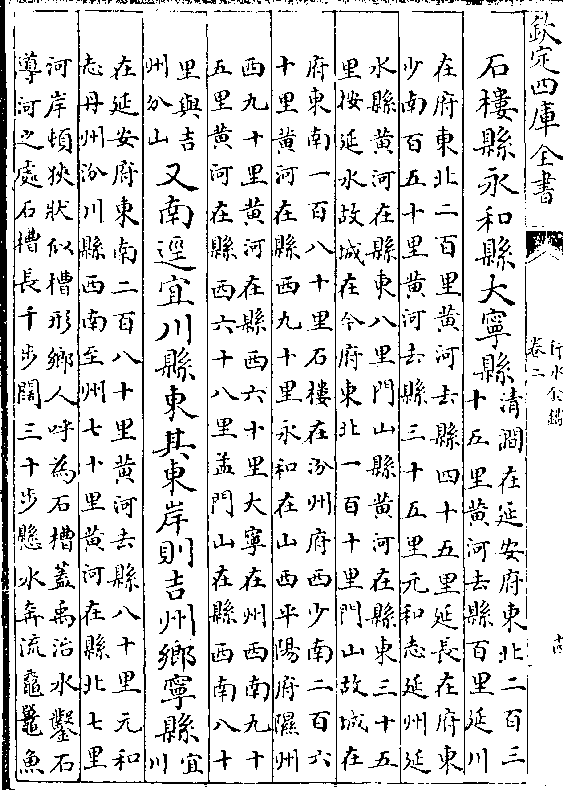 欽定四庫全書
行水金鑑
卷二
十四
石樓縣永和縣大寧縣
清澗在延安府東北二百三
十五里黄河去縣百里延川
在府東北二百里黄河去縣四十五里延長在府東
少南百五十里黄河去縣三十五里元和志延州延
水縣黄河在縣東八里門山縣黄河在縣東三十五
里按延水故城在今府東北一百十里門山故城在
府東南一百八十里石樓在汾州府西少南二百六
十里黄河在縣西九十里永和在山西平陽府隰州
西九十里黄河在縣西六十里大寧在州西南九十
五里黄河在縣西六十八里孟門山在縣西南八十
里與吉
州分山
又南逕宜川縣東其東岸則吉州鄉寧縣
宜
川
在延安府東南二百八十里黄河去縣八十里元和
志丹州汾川縣西南至州七十里黄河在縣北七里
河岸頓狹狀似槽形鄉人呼為石槽蓋禹治水鑿石
導河之處石槽長千步闊三十步懸水奔流黿鼉魚